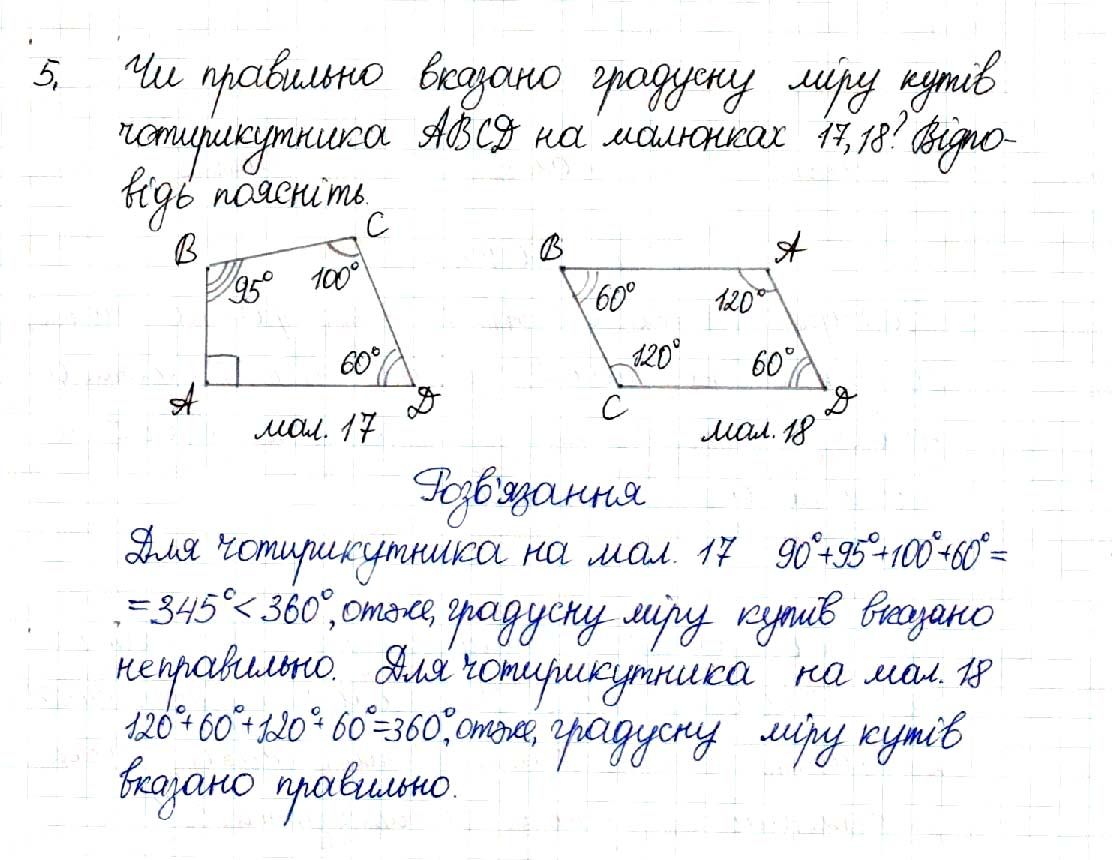 5. Чи правильно вказано градусну міру кутів
чотирикутника ABCD на малюнках 17, 18? Відпо-
відь поясніть.
B C
95° 100°
60°
A D
мал. 17
B A
60° 120°
120° 60°
C D
мал. 18
Розв'язання
Для чотирикутника на мал. 17 90°+95°+100°+60°=
=345°<360°, отже, градусну міру кутів вказано
неправильно. Для чотирикутника на мал. 18
120°+60°+120°+60°=360°, отже, градусну міру кутів
вказано правильно.